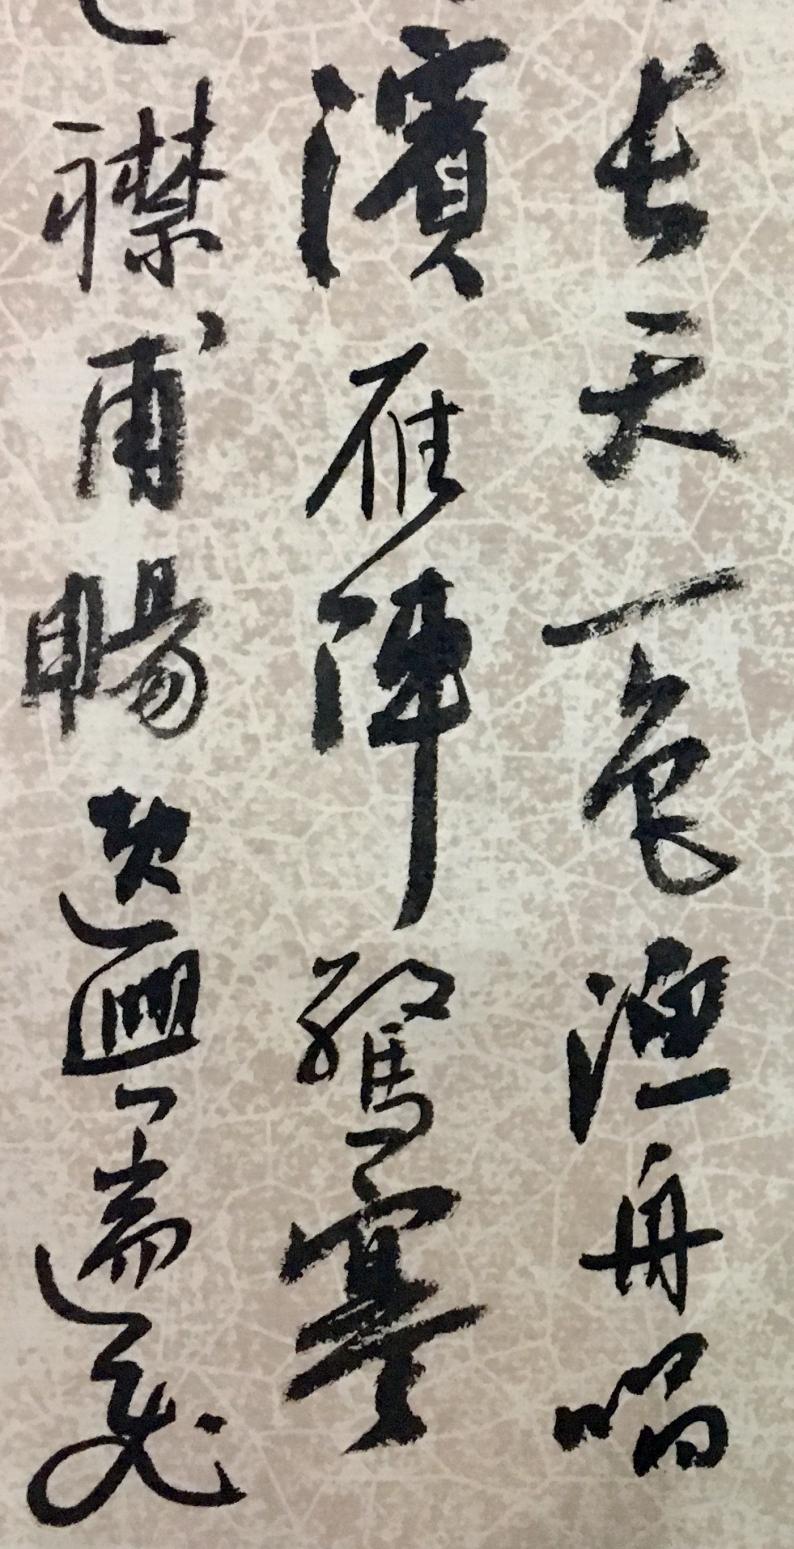 長天一色漁舟唱
濱雁陣驚寒
襟甫暢逸興遄飛